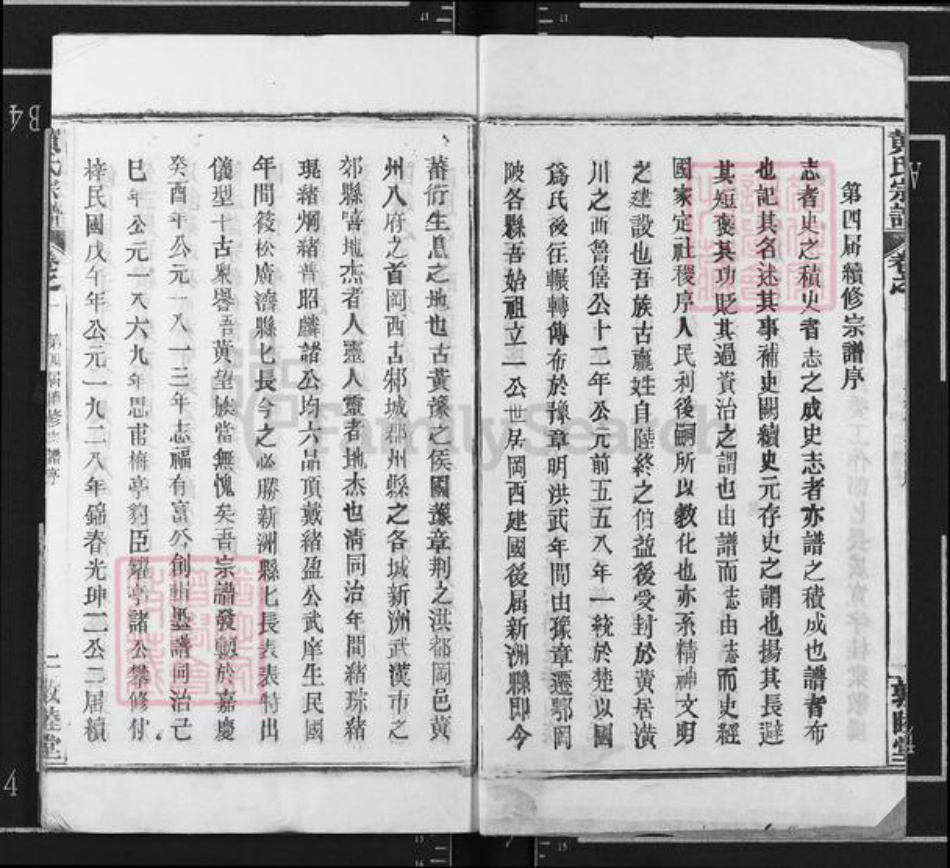 第四届續修宗譜序
志者史之積史者志之成史志者亦譜之積成也譜者布
也記其名述其事補史闕續史元存史之謂也揚其長避
其短褒其功貶其過資治之謂也由譜而志由志而史經
國家定社稷序人民利後嗣所以教化也亦系精神文明
之建設也吾族古嬴姓自陸終之伯益後受封於黃居潢
川之西魯僖公十二年公元前五五八年一統於楚以國
爲氏後往輾轉傳布於豫章明洪武年間由豫章遷鄂岡
陂各縣吾始祖立一公世居岡西建國後届新洲縣即今
蕃衍生息之地也古黃豫之侯國豫章荆之淇都岡邑黃
州八府之首岡西古邾城郡州縣之各城新洲武漢市之
郊縣嘻地杰者人靈人靈者地杰也清同治年間緒琮緒
現緒炯緒普昭麟諸公均六品頂戴緒盈公武庠生民國
年間筱松廣濟縣匕長今之必勝新洲縣匕長表表特出
儀型十古衆譽吾黃望族當無愧矣吾宗譜發軔於嘉慶
癸酉年公元一八一三年志福有富公創輯墨譜同治己
巳年公元一八六九年思甫梅亭豹臣耀亭諸公纂修付
梓民國戊午年公元一九二八年錦春光珅二公二届續
黃氏宗譜
卷之一
第四届續修宗譜序
二
敦睦堂
黃氏宗譜
卷之
敦睦堂
FamilySearch
B4
4
A